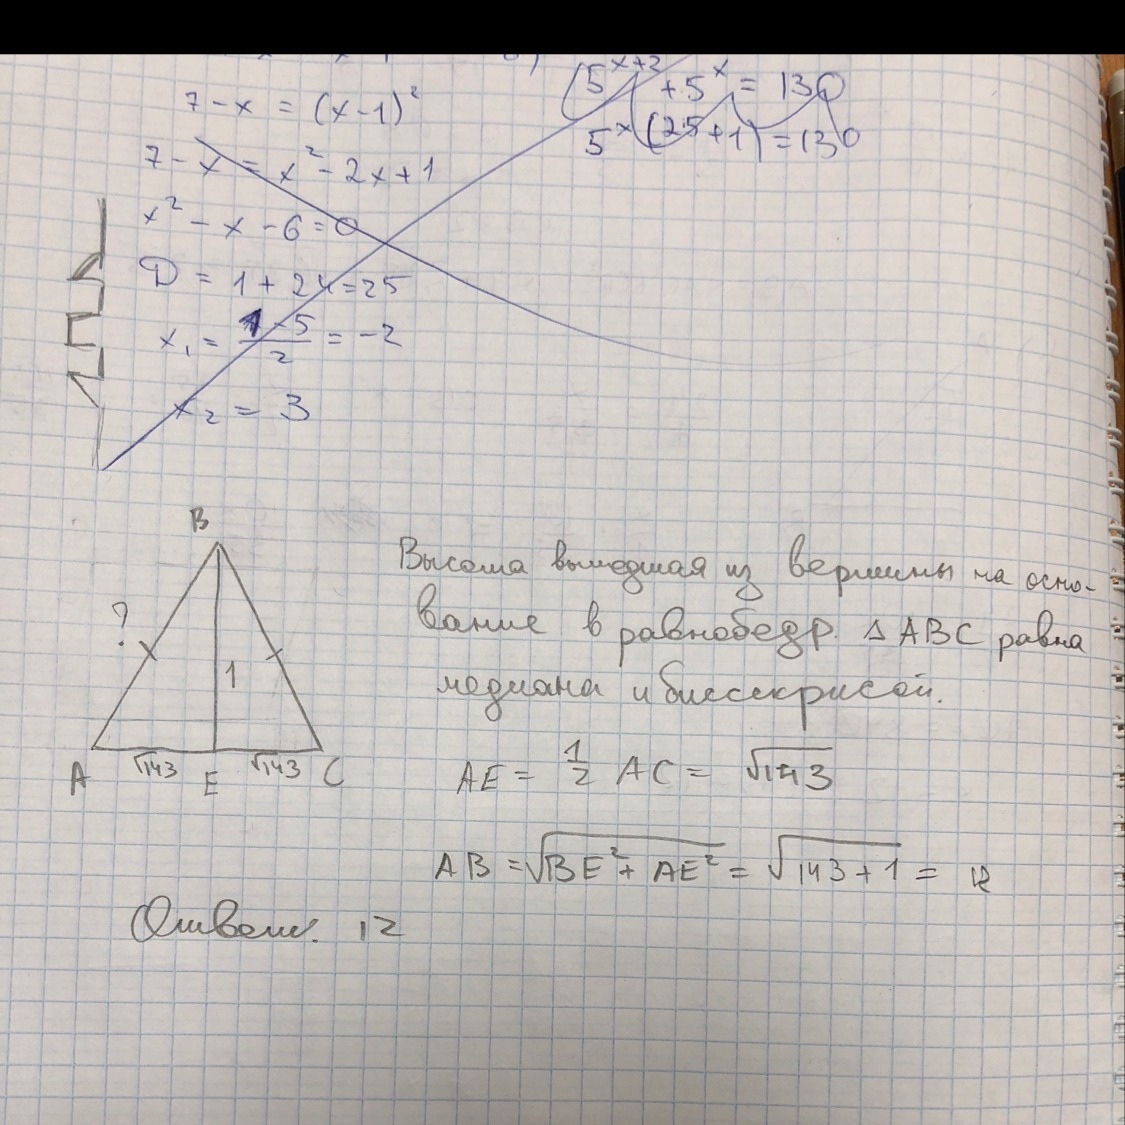 7 - x = (x - 1)²
7 - x = x² - 2x + 1
x² - x - 6 = 0
D = 1 + 24 = 25
x₁ = (1 - 5)/2 = -2
x₂ = 3
5^(x+2) + 5^x = 130
5^x (25 + 1) = 130
B
?
1
√143 √143
A E C
Высота вышедшая из вершины на осно-
вание в равнобедр. △ABC равна
медиана и биссекрисой.
AE = 1/2 AC = √143
AB = √(BE² + AE²) = √(143 + 1) = 12
Ответ. 12